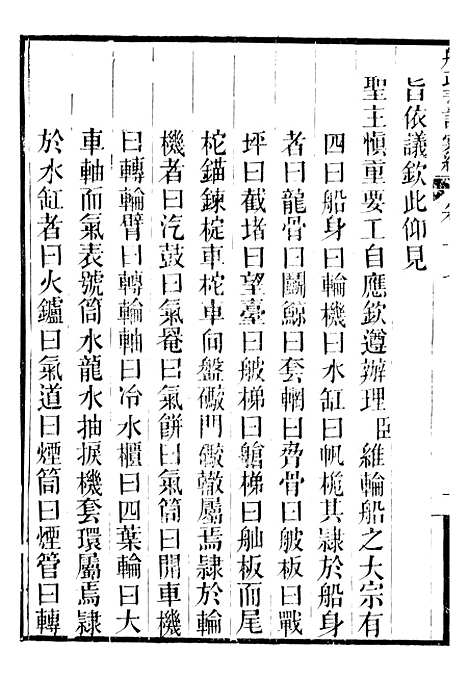 旨依議欽此仰見
聖主愼重要工自應欽遵辦理臣維輪船之大宗有
四曰船身曰輪機曰水缸曰帆桅其隸於船身
者曰龍骨曰鬬鯨曰套輞曰脅骨曰艕板曰戰
坪曰截堵曰望臺曰艕梯曰艙梯曰舢板而尾
柁錨鍊椗車柁車向盤礮門礮轍屬焉隸於輪
機者曰汽鼓曰氣罨曰氣餅曰氣筒曰開車機
曰轉輪臂曰轉輪軸曰冷水櫃曰四葉輪曰大
車軸而氣表號筒水龍水抽捩機套環屬焉隸
於水缸者曰火鑪曰氣道曰煙筒曰煙管曰轉